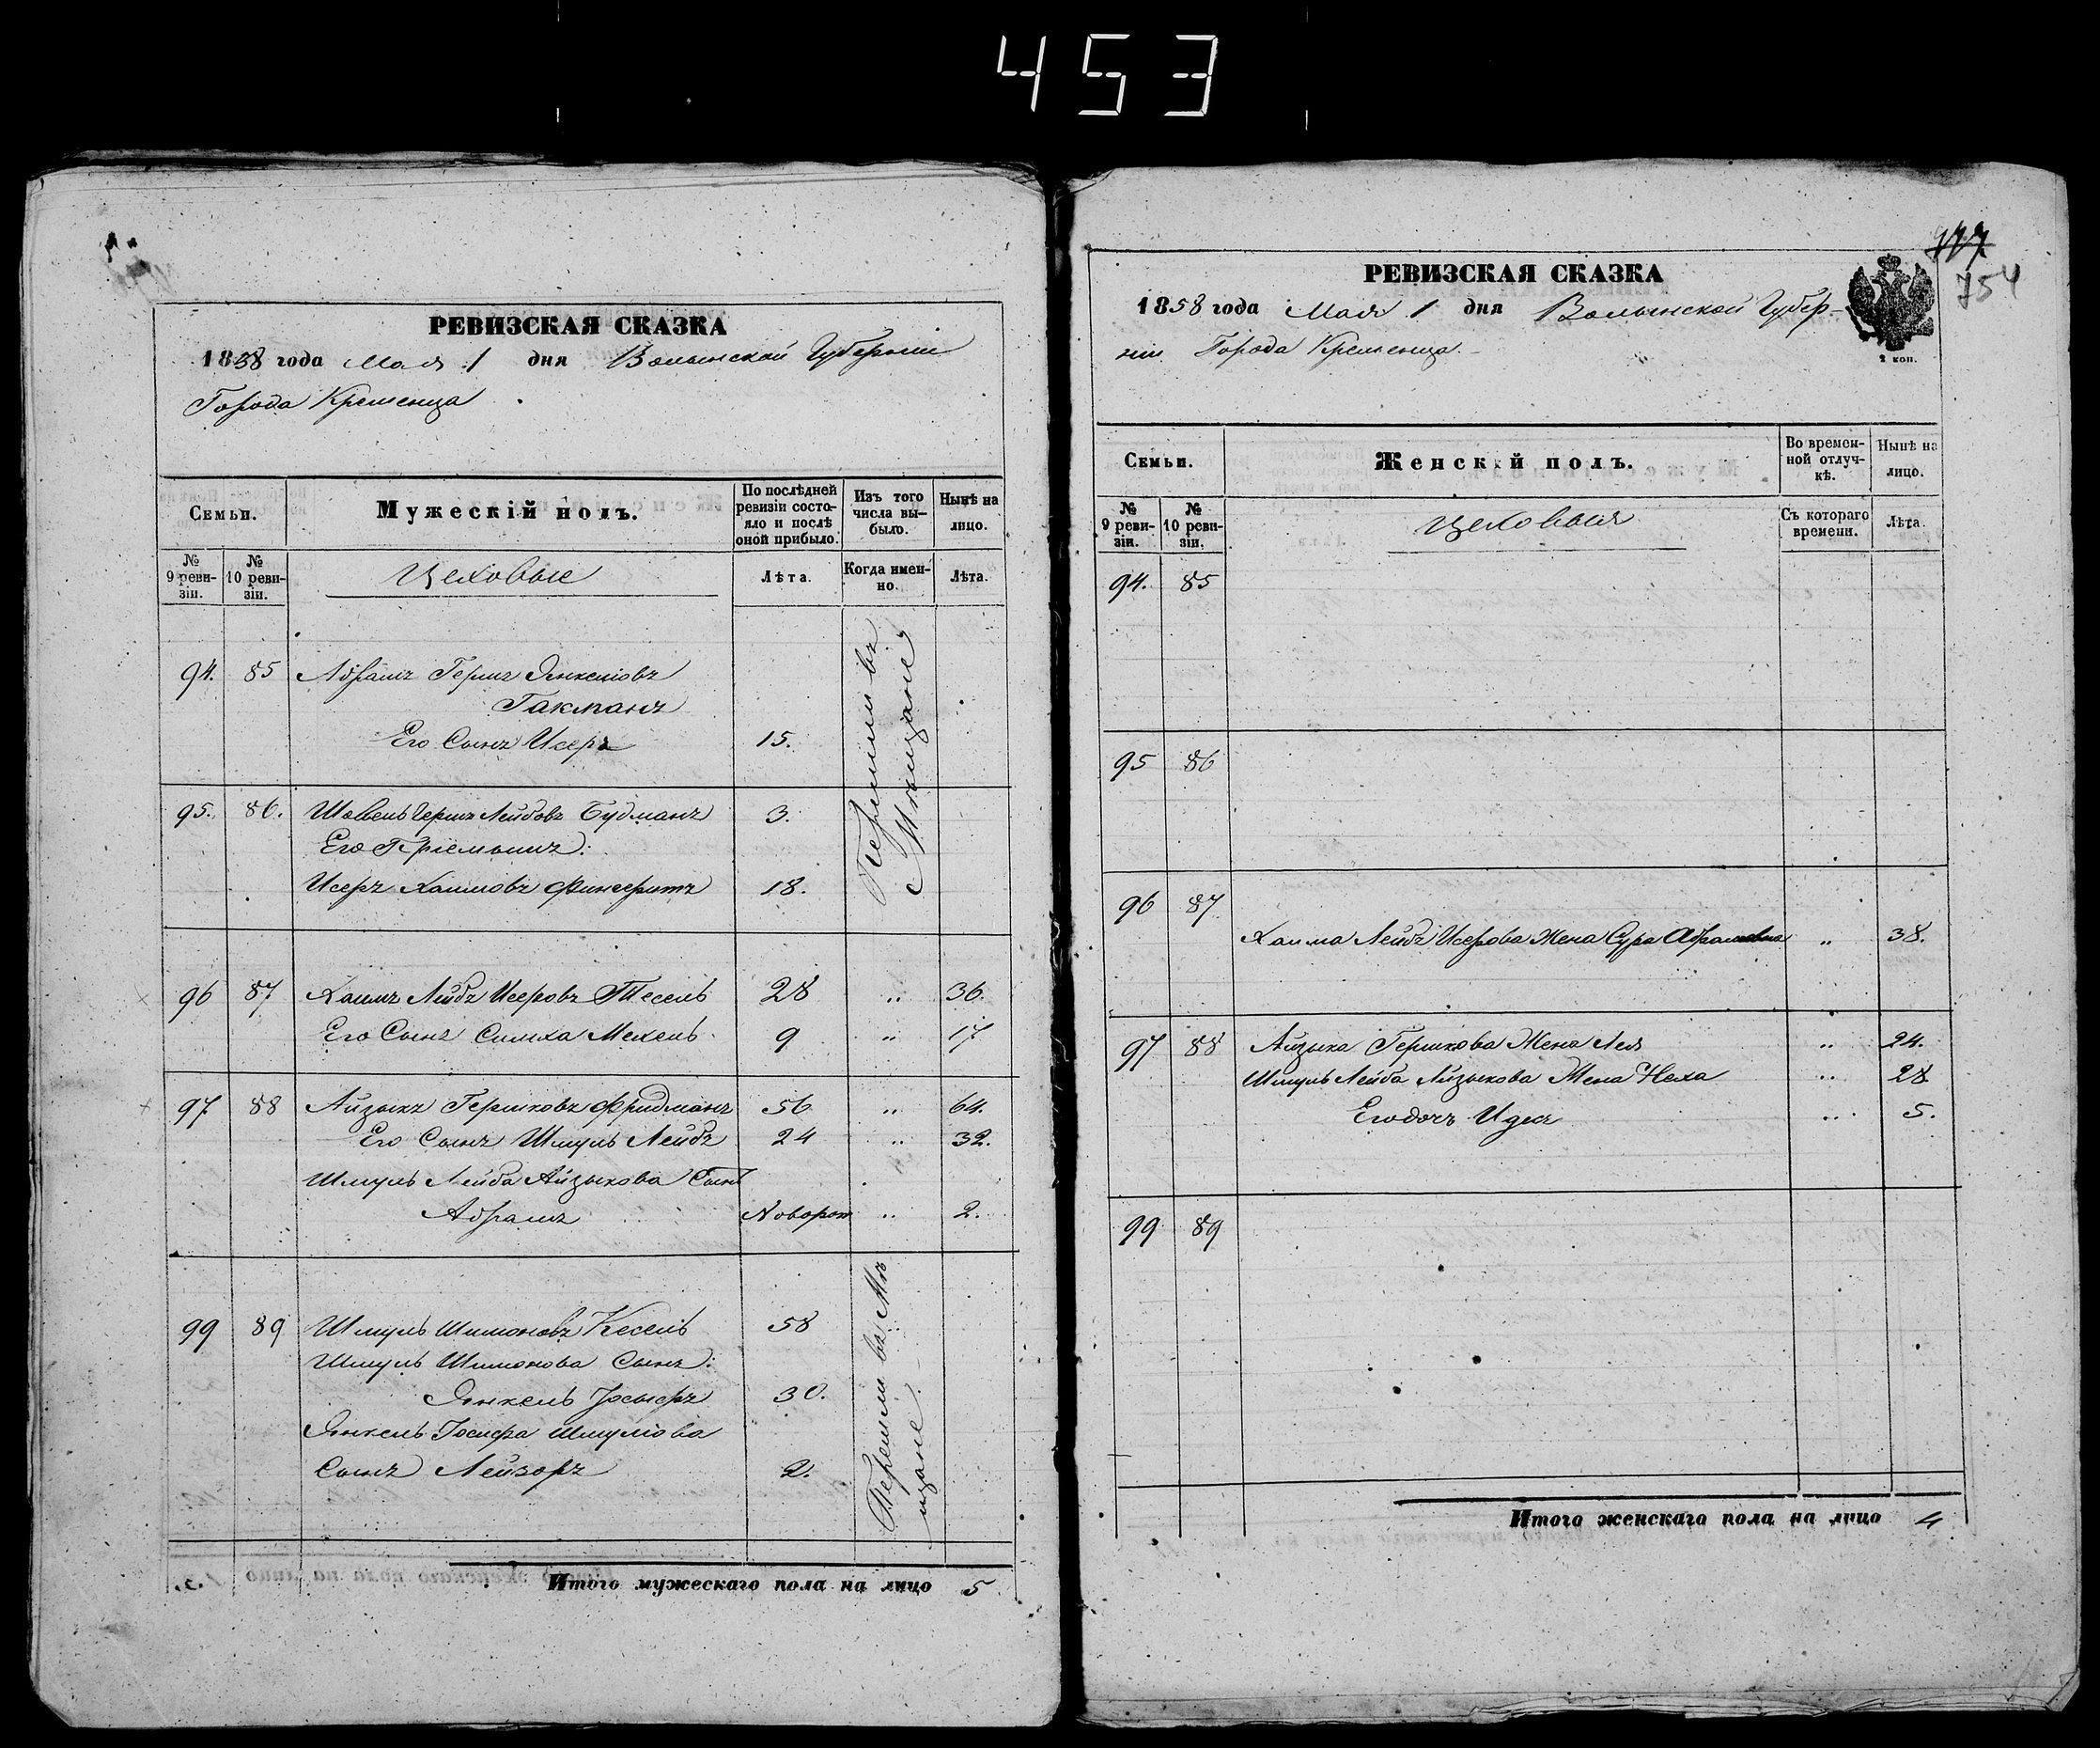 453
РЕВИЗСКАЯ СКАЗКА
1858 года Мая 1 дня Волынской Губерніи
Города Кременца
Семьи.
Мужескій полъ.
По послѣдней ревизіи состояло и послѣ оной прибыло.
Изъ того числа выбыло.
Нынѣ на лицо.
№ 9 ревизіи.
№ 10 ревизіи.
Цеховые
Лѣта.
Когда именно.
Лѣта.
94. 85 Абрамъ Гершъ Янкеліовъ
Гакманъ
Его Сынъ Исеръ 15.
Перешли въ Мѣщане
95. 86. Шевель Гершъ Лейбовъ Будманъ 3.
Его Пріемышъ:
Исеръ Хаимовъ 18.
96 87 Хаимъ Лейбъ Исеровъ Тесель 28 " 36.
Его Сынъ Симха Мехель 9 " 17
97 88 Айзыкъ Гершковъ Фридманъ 56 " 64.
Его Сынъ Шмуль Лейбъ 24 " 32.
Шмуль Лейба Айзыкова Сынъ
Абрамъ Новорож " 2.
99 89 Шмуль Шимоновъ Кесель 58
Шмуль Шимонова Сынъ:
Янкель Іосыфъ 30.
Янкель Іосифа Шмуліова
Сынъ Лейзоръ 2.
Перешли въ Мѣщане
Итого мужескаго пола на лицо 5
754
РЕВИЗСКАЯ СКАЗКА
1858 года Мая 1 дня Волынской Губерніи
Города Кременца
2 коп.
Семьи.
Женскій полъ.
Во временной отлучкѣ.
Нынѣ на лицо.
№ 9 ревизіи.
№ 10 ревизіи.
Цеховыя
Съ котораго времени.
Лѣта.
94. 85
95 86
96 87
Хаима Лейбъ Исерова Жена Сура Абрамовна " 38.
97 88 Айзыка Гершкова Жена Лея " 24.
Шмуль Лейба Айзыкова Жена Неха " 28
Его дочь Идея " 5.
99 89
Итого женскаго пола на лицо 4